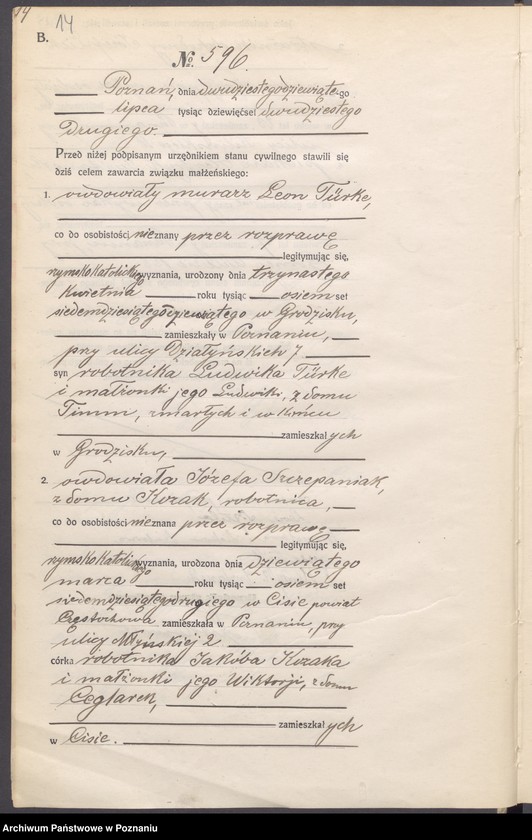 14
14
B.
No. 596
Poznań, dnia dwudziestegodziewiątego
lipca tysiąc dziewięćset dwudziestego
drugiego.
Przed niżej podpisanym urzędnikiem stanu cywilnego stawili się
dziś celem zawarcia związku małżeńskiego:
1. owdowiały murarz Leon Türke,
co do osobistości nieznany przez rozprawę
legitymując się,
rymsko katolickiego wyznania, urodzony dnia trzynastego
kwietnia roku tysiąc osiemset
siedemdziesiątegodziewiątego w Grodzisku,
zamieszkały w Poznaniu,
przy ulicy Działyńskich 7
syn robotnika Ludwika Türke
i małżonki jego Ludwiki, z domu
Timm, zmarłych i w końcu
zamieszkałych
w Grodzisku,
2. owdowiała Józefa Szczepaniak,
z domu Kozak, robotnica,
co do osobistości nieznana przez rozprawę
legitymując się,
rymsko katolickiego wyznania, urodzona dnia dziewiątego
marca roku tysiąc osiemset
siedemdziesiątegodrugiego w Cisie powiat
Częstochowa zamieszkała w Poznaniu, przy
ulicy Młyńskiej 2
córka robotnika Jakóba Kozaka
i małżonki jego Wiktorji, z domu
Ceglarek,
zamieszkałych
w Cisie.
Archiwum Państwowe w Poznaniu